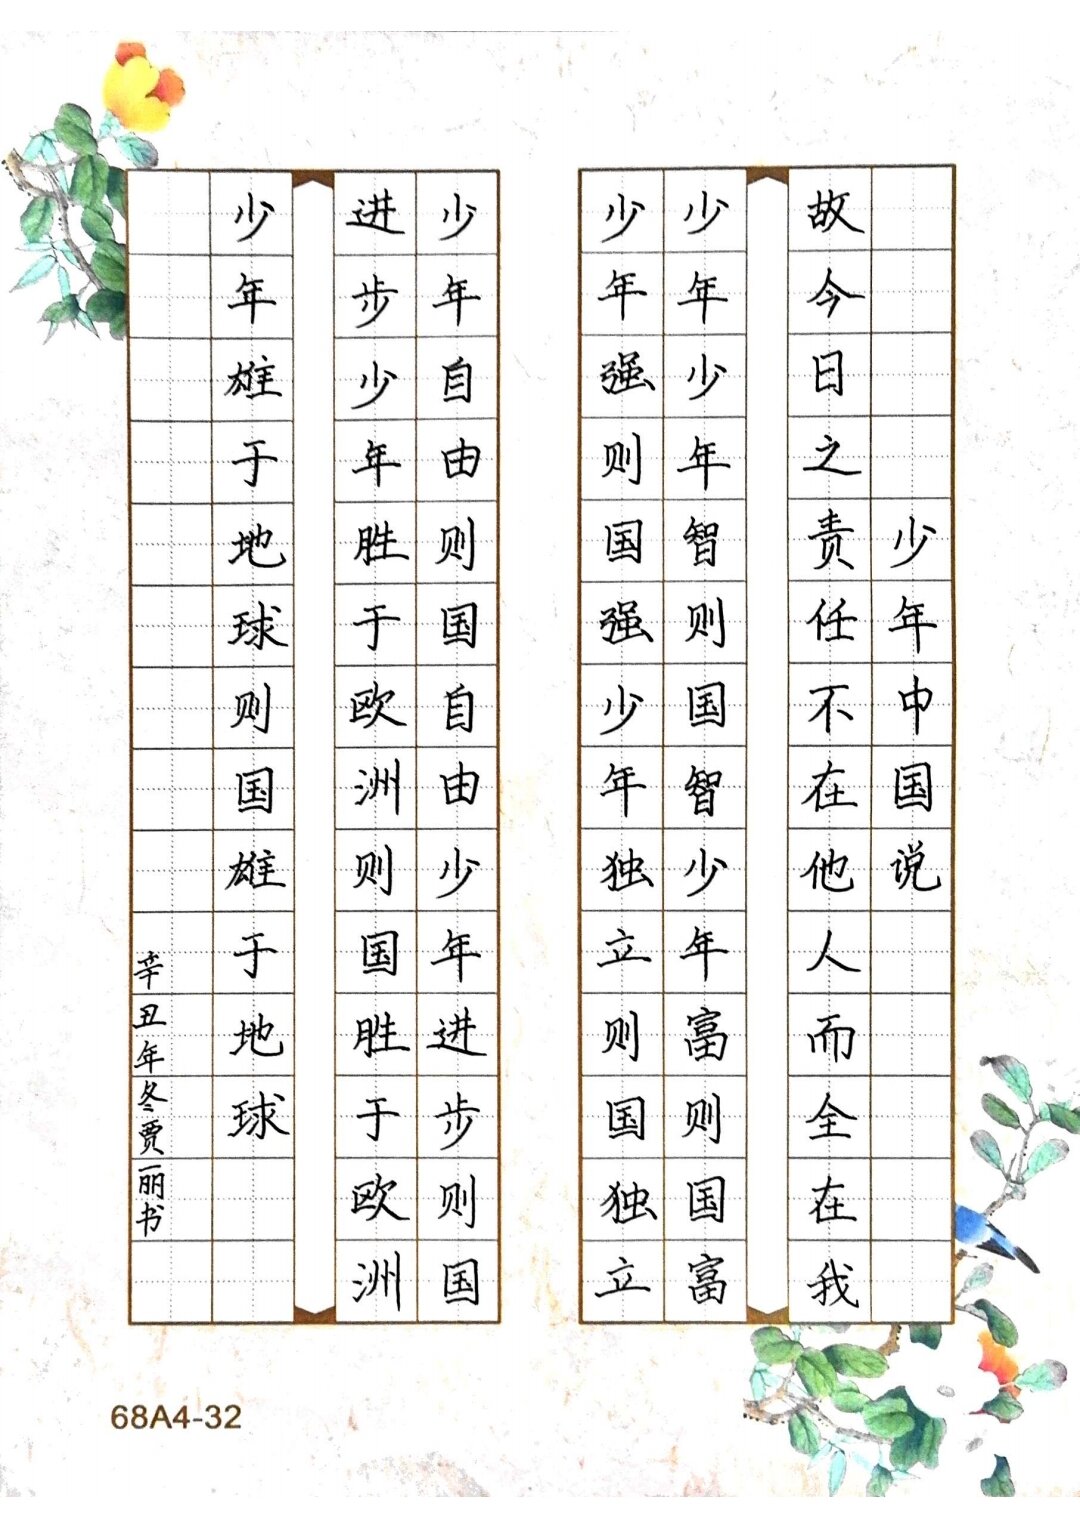 少年中国说
故今日之责任不在他人而全在我
少年少年智则国智少年富则国富
少年强则国强少年独立则国独立
少年自由则国自由少年进步则国
进步少年胜于欧洲则国胜于欧洲
少年雄于地球则国雄于地球
辛丑年冬贾丽书
68A4-32